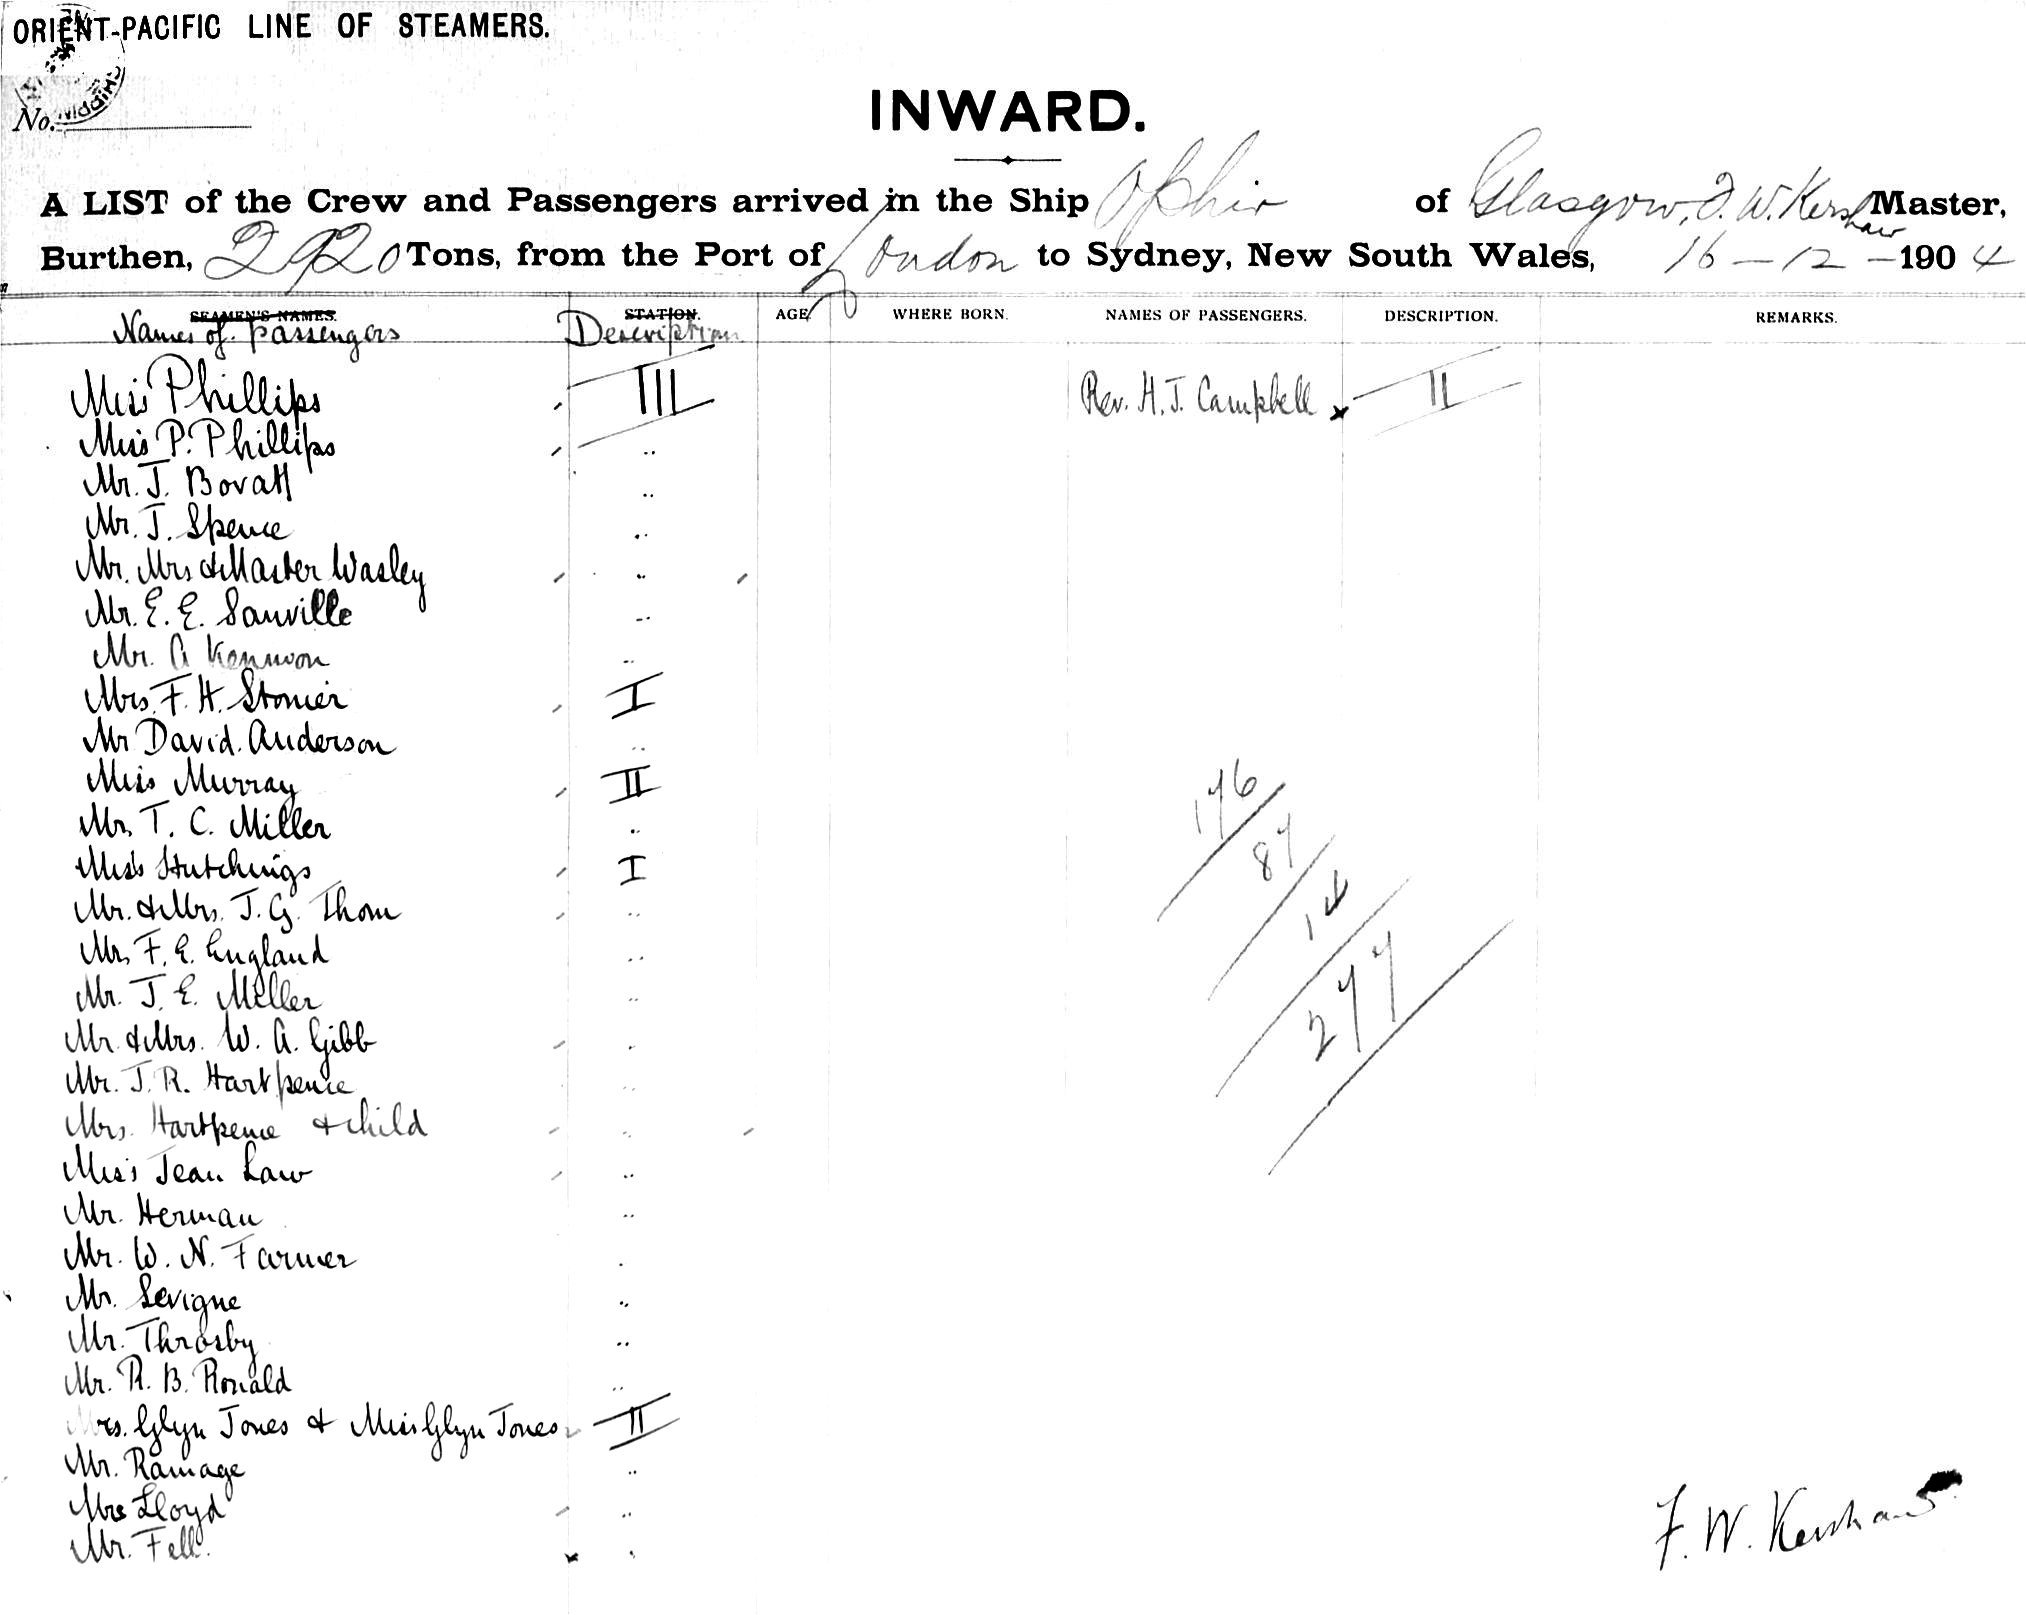 ORIENT-PACIFIC LINE OF STEAMERS.
SHIPPING
No.
INWARD.
A LIST of the Crew and Passengers arrived in the Ship Ophir of Glasgow, F. W. Kershaw Master,
Burthen, 2920 Tons, from the Port of London to Sydney, New South Wales, 16 - 12 - 1904
SEAMEN'S NAMES. STATION. AGE WHERE BORN. NAMES OF PASSENGERS. DESCRIPTION. REMARKS.
Names of passengers Description
Miss Phillips III Rev. H. J. Campbell II
Miss P. Phillips ..
Mr. J. Bovatt ..
Mr. J. Spence ..
Mr. Mrs & Master Wasley ..
Mr. E. E. Sanville ..
Mr. A Kennion ..
Mrs. F. H. Stonier I
Mr David Anderson ..
Miss Murray II
Mr. T. C. Miller ..
Miss Hutchings I
Mr. & Mrs. J. G. Thom ..
Mr. F. E. England ..
Mr. J. E. Miller ..
Mr. & Mrs. W. A. Gibb ..
Mr. J. R. Hartpence ..
Mrs. Hartpence & child ..
Miss Jean Law ..
Mr. Herman ..
Mr. W. N. Farmer ..
Mr. Sevigne ..
Mr. Throsby ..
Mr. R. B. Ronald ..
Mrs. Glyn Jones & Miss Glyn Jones II
Mr. Ramage ..
Mrs Lloyd ..
Mr. Fell. ..
176
87
14
277
F. W. Kershaw